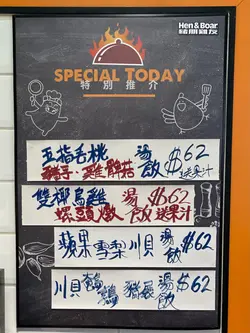 Hen&Boar
豬朋雞友
SPECIAL TODAY
特別推介
五指毛桃 湯 $62
豬手·雞 飯 送果汁
雙椰烏雞 湯 $62
螺頭燉 飯 送果汁
蘋果雪梨川貝 湯飯 $62
川貝鷓鴣 豬𦟌 湯飯 $62